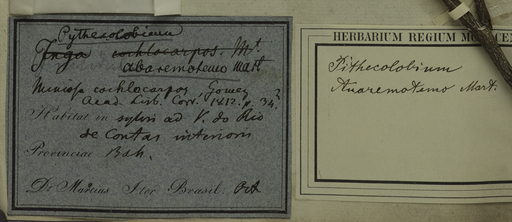 Pythecolobium
Inga cochlocarpos. Mt.
abaremotemo Mart
Mimosa cochlocarpos, Gomez
Acad. Lisb. Corr. 1812. p. 34.
Habitat in sylvis ad V. do Rio
de Contas interioris
Provinciae Bah.
Dr Martius Iter Brasil. Oct
HERBARIUM REGIUM MONACENSE
Pithecolobium
Auaremotemo Mart.